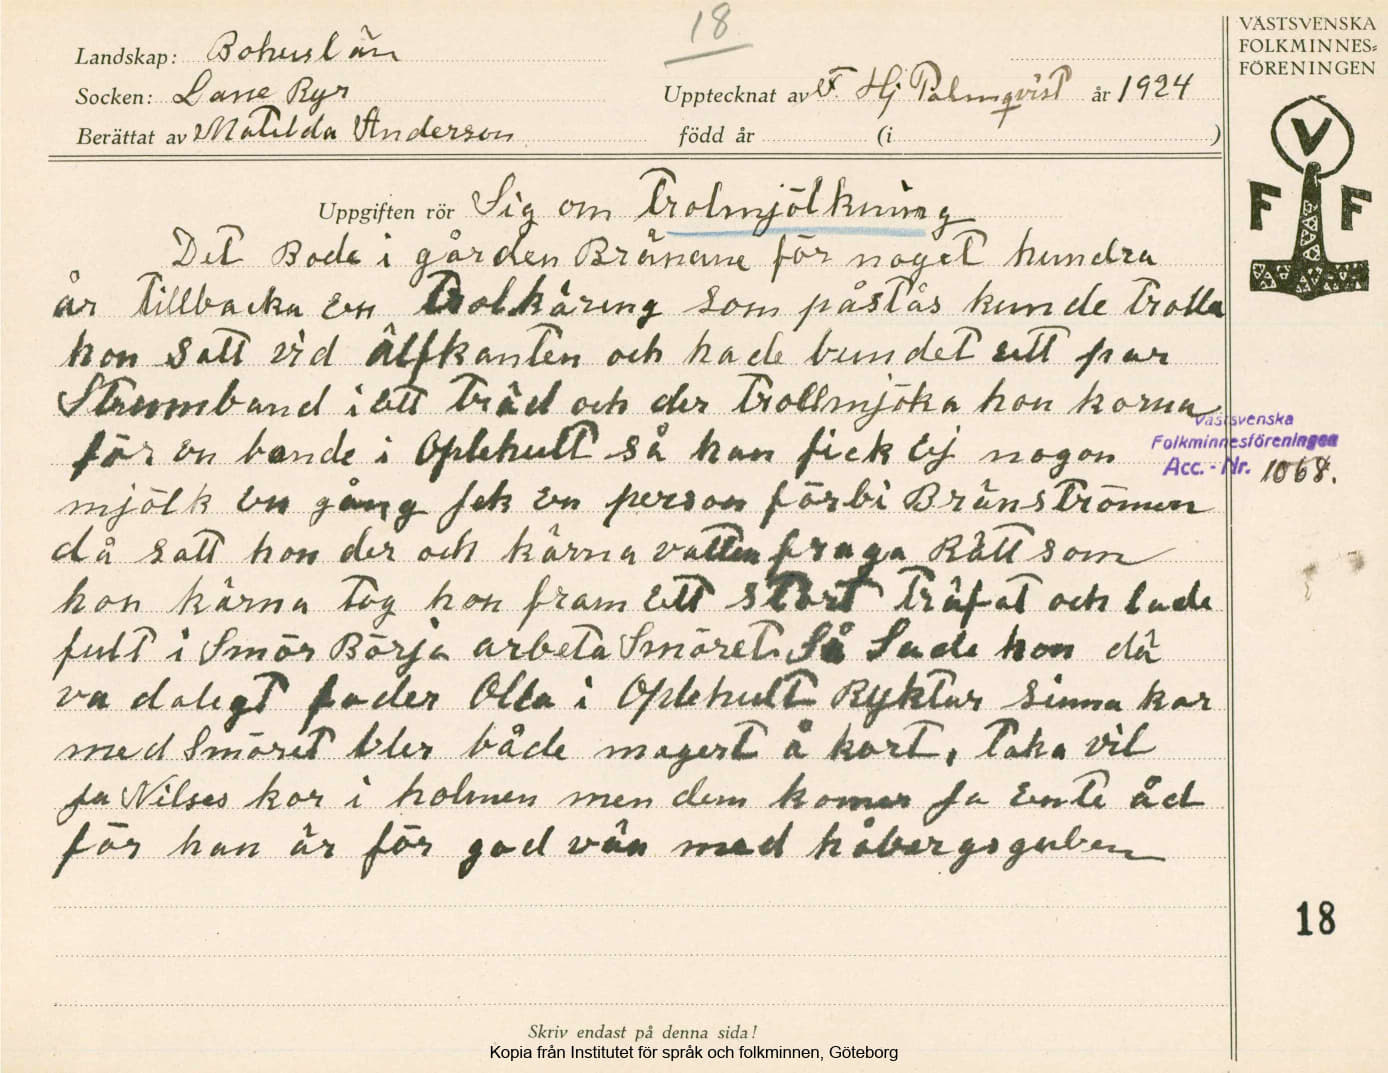 18
VÄSTSVENSKA
FOLKMINNES=
FÖRENINGEN
V
F F
Landskap: Bohuslän
Socken: Lane Ryr
Upptecknat av F. Hj Palmqvist år 1924
Berättat av Matilda Anderson född år (i )
Uppgiften rör Sig om Trolmjölkning
Det Bode i gården Bränane för noget hundra
år tillbacka en Trolkäring som påstås kunde trolla
hon satt vid älfkanten och hade bundet ett par
Strumband i ett träd och der trollmjöka hon korna
för en bonde i Oplehult så han fick Ej nogon
mjölk en gång jek en person förbi Bränströmen
då satt hon der och kärna vatten fraga Rätt som
hon kärna tog hon fram ett stort träfat och lade
fult i Smör Börja arbeta Smöret. Så Sade hon då
va daligt foder Olla i Oplehult Ryktar sinna kor
med Smöret bler både magert å kort, Toka vil
ja Nilses kor i holmen men dem komer ja Ente åd
för han är för god vän med håbergsguben
Västsvenska
Folkminnesföreningen
Acc. - Nr. 1068.
18
Skriv endast på denna sida!
Kopia från Institutet för språk och folkminnen, Göteborg